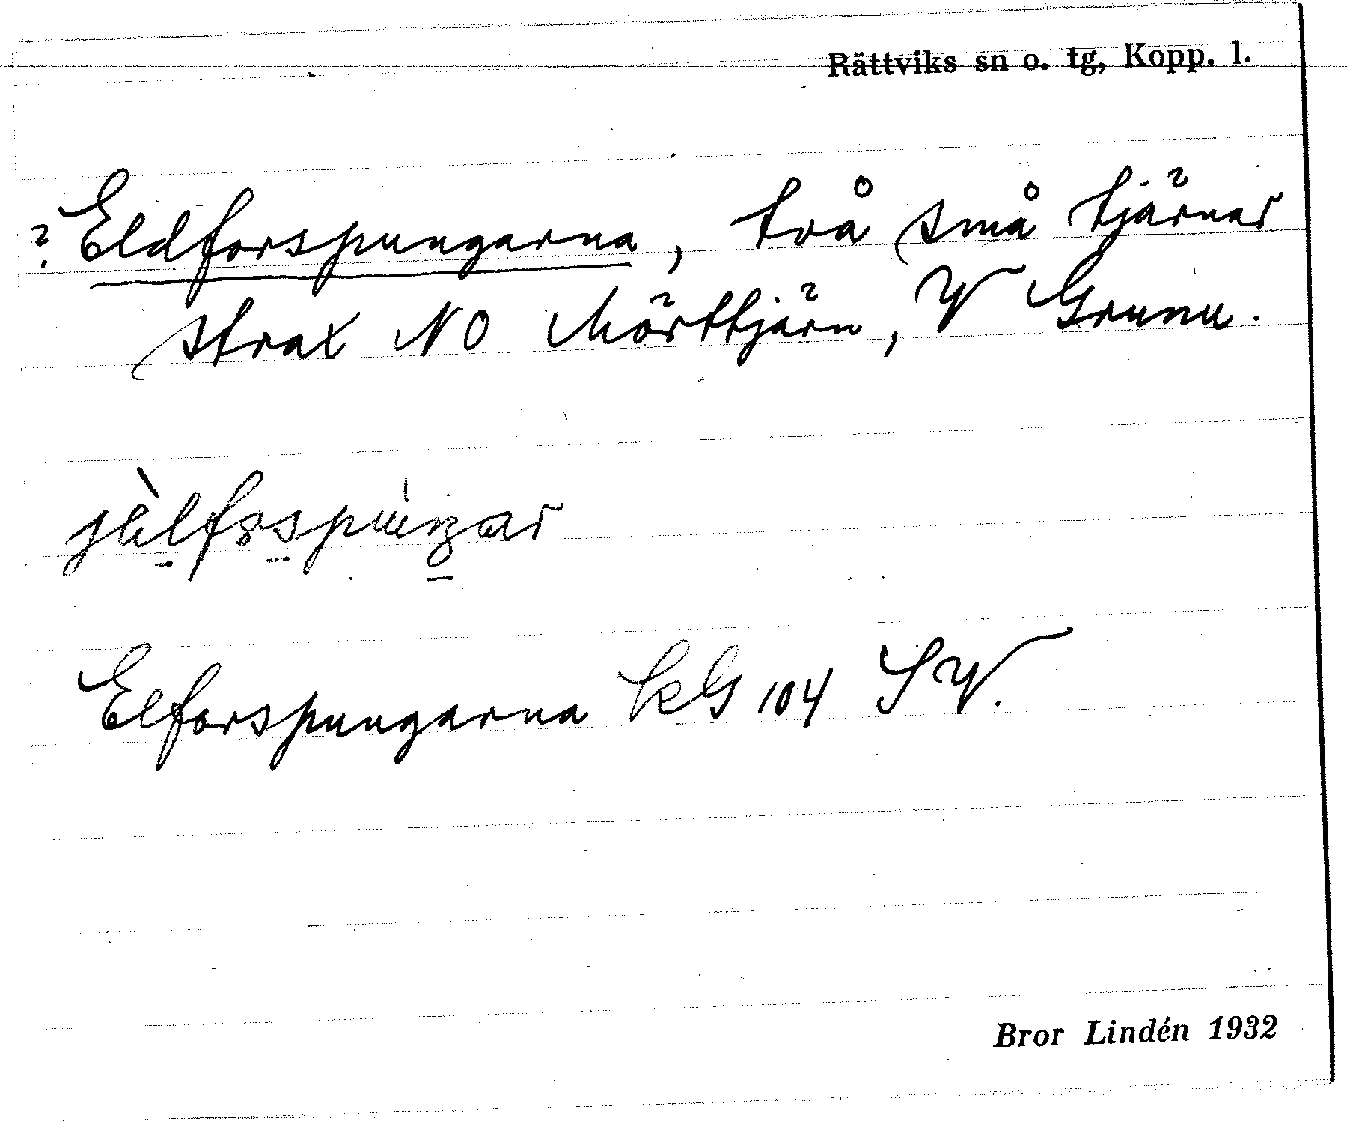 Rättviks sn o. tg, Kopp. l.
? Eldforspungarna, två små tjärnar
strax NO Mörttjärn, V Grunu.
Elforspungarna SkG 104 SV.
Bror Lindén 1932